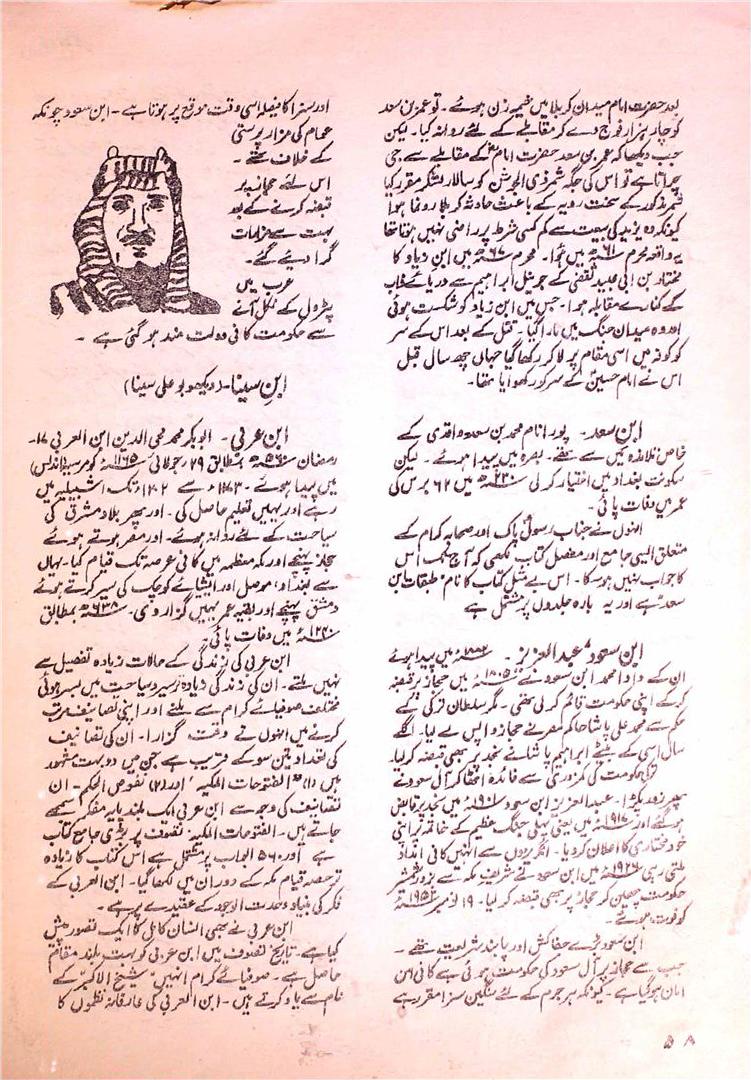 بعد حضرت امام میدان کربلا میں خیمہ زن ہوئے ۔ تو عمر بن سعد
کو چار ہزار فوج دے کر مقابلے کے لئے روانہ کیا ۔ لیکن
جب دیکھا کہ عمر بن سعد حضرت امامؑ کے مقابلے سے جی
چراتا ہے تو اس کی جگہ شمر ذی الجوشن کو سالار لشکر مقرر کیا
شمر مذکور کے سخت رویہ کے باعث حادثہ کربلا رونما ہوا
کیونکہ وہ یزید کی بیعت سے کم کسی شرط پر راضی نہیں ہوتا تھا
یہ واقعہ محرم ۶۱ھ میں ہوا ۔ محرم ۶۷ھ میں ابن زیاد کا
مختار بن ابی عبید ثقفی کے جرنیل ابراہیم سے دریائے
کے کنارے مقابلہ ہوا ۔ جس میں ابن زیاد کو شکست ہوئی
اور وہ میدان جنگ میں مارا گیا ۔ قتل کے بعد اس کے سر
کو کوفہ میں اسی مقام پر لا کر رکھا گیا جہاں چھ سال قبل
اس نے امام حسینؑ کے سر کو رکھوایا تھا ۔
ابن سعد ۔ پورا نام محمد بن سعد واقدی کے
خاص تلامذہ میں سے تھے ۔ بصرہ میں پیدا ہوئے ۔ لیکن
سکونت بغداد میں اختیار کر لی ۲۳۰ھ میں ۶۲ برس کی
عمر میں وفات پائی ۔
انہوں نے جناب رسولؐ پاک اور صحابہ کرام کے
متعلق ایسی جامع اور مفصل کتاب لکھی کہ آج تک اس
کا جواب نہیں ہو سکا ۔ اس بے مثل کتاب کا نام طبقات ابن
سعد ہے اور یہ بارہ جلدوں پر مشتمل ہے
ابن سعود عبدالعزیز ۔ میں پیدا ہوئے
ان کے دادا محمد ابن سعود نے ۱۸۰۵ء میں حجاز پر قبضہ
کر کے اپنی حکومت قائم کر لی تھی ۔ مگر سلطان ترکی کے
حکم سے محمد علی پاشا حاکم مصر نے حجاز واپس لے لیا ۔ اگلے
سال اسی کے بیٹے ابراہیم پاشا نے نجد پر بھی قبضہ کر لیا ۔
ترکی حکومت کی کمزوری سے فائدہ اٹھا کر آل سعود نے
پھر زور پکڑا ۔ عبدالعزیز ابن سعود ۱۹۰۱ء میں نجد پر قابض
ہو گئے اور ۱۹۱۸ء میں یعنی پہلی جنگ عظیم کے خاتمہ پر اپنی
خود مختاری کا اعلان کر دیا ۔ انگریزوں سے انہیں کافی امداد
ملتی رہی ۱۹۲۶ء میں ابن سعود نے شریف مکہ سے بزور شمشیر
حکومت چھین کر حجاز پر بھی قبضہ کر لیا ۔ ۱۹ نومبر ۱۹۵۳ء
کو فوت ہوئے ۔
ابن سعود بڑے جفاکش اور پابند شریعت تھے ۔
جب سے حجاز پر آل سعود کی حکومت ہوئی ہے کافی امن
امان ہو گیا ہے ۔ کیونکہ ہر جرم کے لئے سنگین سزا مقرر ہے
اور سزا کا فیصلہ اسی وقت موقع پر ہوتا ہے ۔ ابن سعود چونکہ
عوام کی مزار پرستی
کے خلاف تھے ۔
اس لئے حجاز پر
قبضہ کرنے کے بعد
بہت سے مزارات
گرا دیے گئے ۔
عرب میں
پٹرول کے نکل آنے
سے حکومت کافی دولت مند ہو گئی ہے ۔
ابن سینا ۔ (دیکھو بو علی سینا)
ابن عربی ۔ ابوبکر محمد محی الدین ابن العربی ۱۷۔
رمضان ۵۶۰ھ بمطابق ۲۹ ، جولائی ۱۱۶۵ء کو مرسیہ (اندلس)
میں پیدا ہوئے ۔ ۱۱۷۳ء سے ۱۲۰۲ تک اشبیلیہ میں
رہے اور یہیں تعلیم حاصل کی ۔ اور پھر بلاد مشرق کی
سیاحت کے لئے روانہ ہوئے ۔ اور مصر ہوتے ہوئے
حجاز پہنچے اور مکہ معظمہ میں کافی عرصہ تک قیام کیا ۔ یہاں
سے بغداد ، موصل اور ایشیائے کوچک کی سیر کرتے ہوئے
دمشق پہنچے اور بقیہ عمر یہیں گزار دی ۔ ۶۳۸ھ بمطابق
۱۲۴۰ء میں وفات پائی ۔
ابن عربی کی زندگی کے حالات زیادہ تفصیل سے
نہیں ملتے ۔ ان کی زندگی زیادہ تر سیر و سیاحت میں بسر ہوئی
مختلف صوفیائے کرام سے ملنے اور اپنی تصانیف مرتب
کرنے میں انہوں نے وقت گزارا ۔ ان کی تصانیف
کی تعداد تین سو کے قریب ہے جن میں دو بہت مشہور
ہیں (۱) "الفتوحات المکیہ" اور (۲) نفوص الحکم ۔ ان
تصانیف کی وجہ سے ابن عربی ایک بلند پایہ مفکر سمجھے
جاتے ہیں ۔ الفتوحات المکیہ تصوف پر بڑی جامع کتاب
ہے اور ۵۶۰ ابواب پر مشتمل ہے اس کتاب کا زیادہ
تر حصہ قیام مکہ کے دوران میں لکھا گیا ۔ ابن العربی کے
فکر کی بنیاد وحدت الوجود کے عقیدے پر ہے ۔
ابن عربی نے بھی انسان کامل کا ایک تصور پیش
کیا ہے ۔ تاریخ تصوف میں ابن عربی کو بہت بلند مقام
حاصل ہے ۔ صوفیائے کرام انہیں "شیخ الاکبر" کے
نام سے یاد کرتے ہیں ۔ ابن العربی کی عارفانہ نظموں کا
۵۸